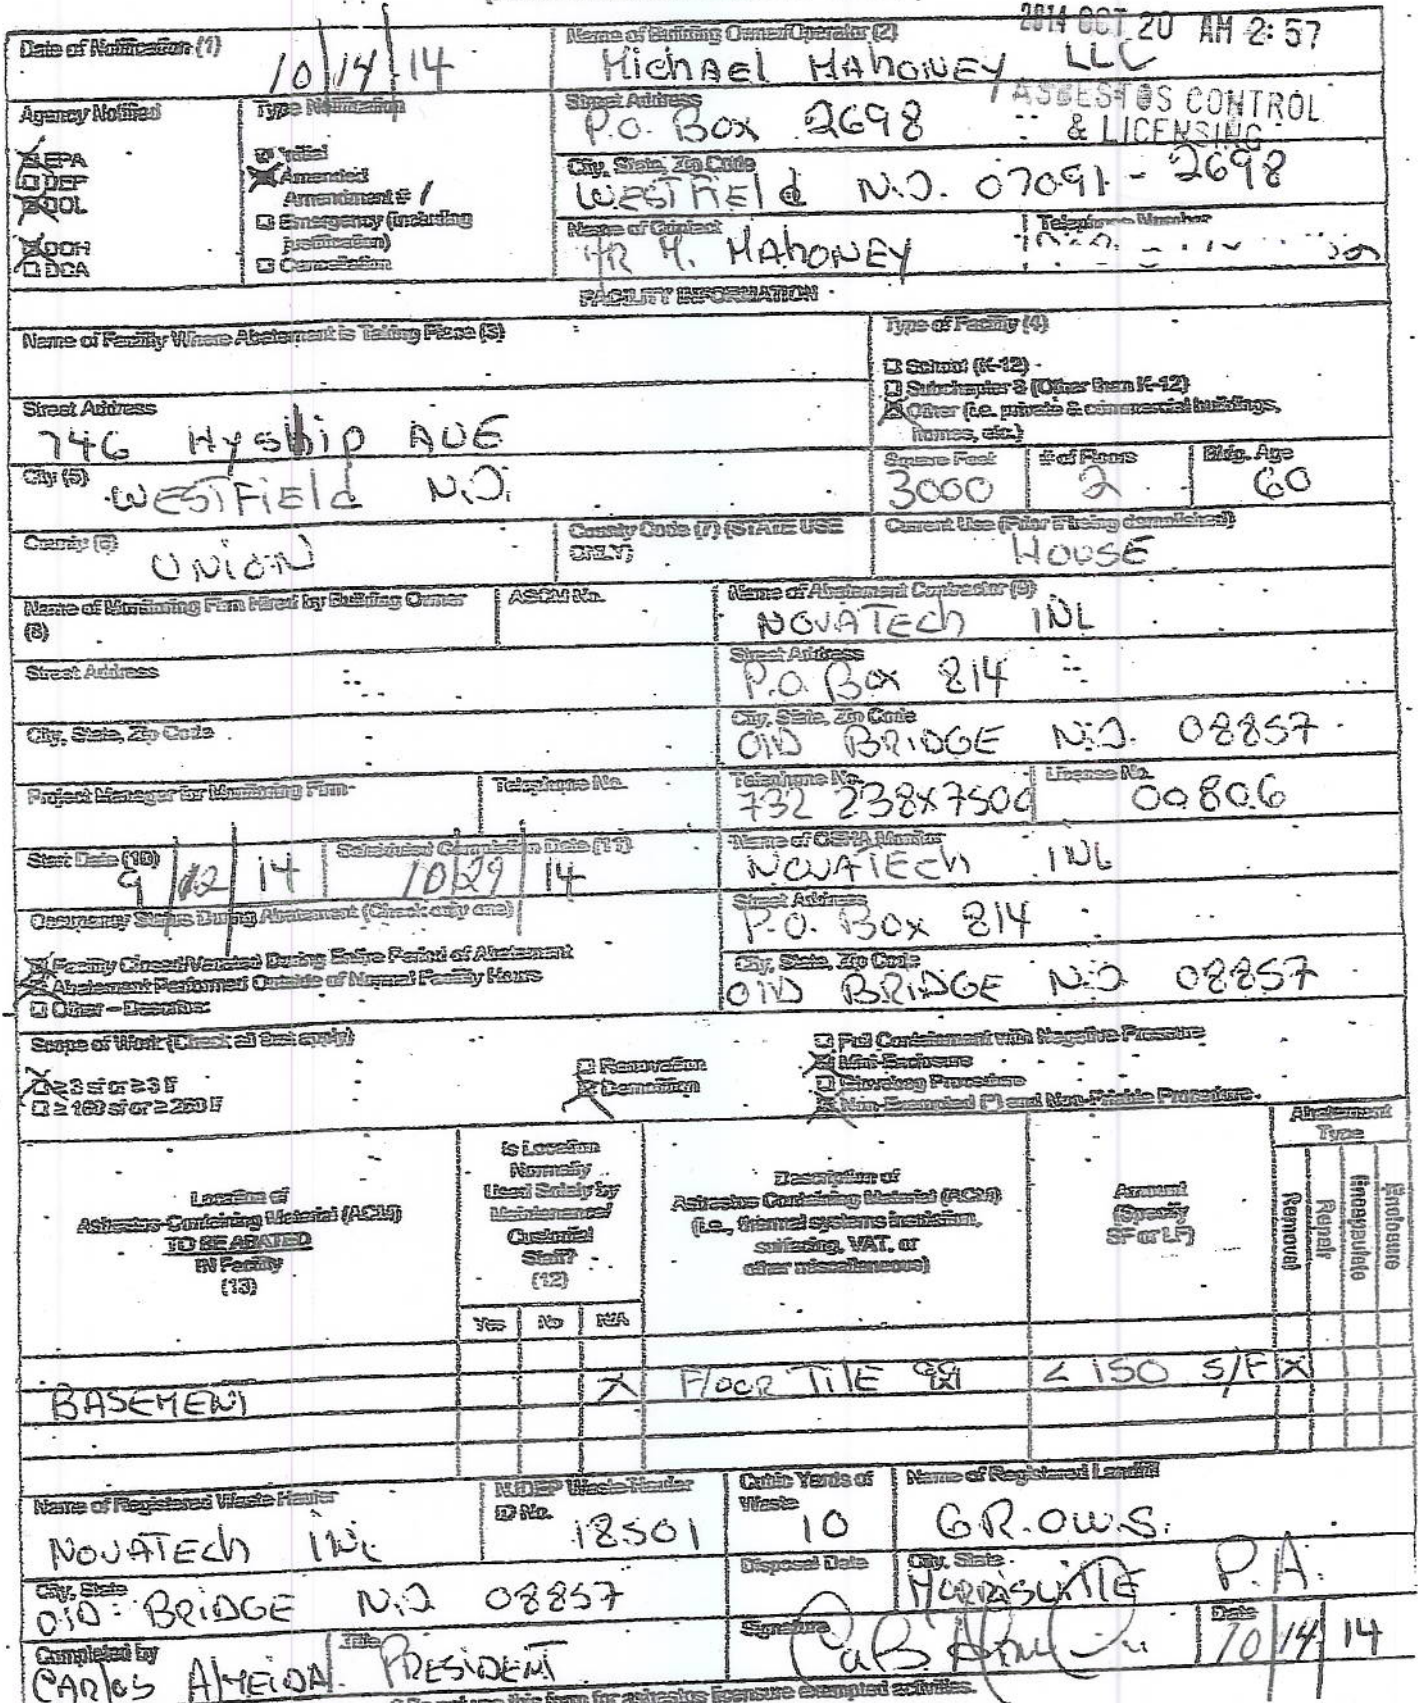 2014 OCT 20 AM 2:57
ASBESTOS CONTROL
& LICENSING
Date of Notification (1)
10/14/14
Name of Building Owner/Operator (2)
Michael Mahoney LLC
Agency Notified
EPA
DEP
DOL
DOH
DCA
Type Notification
Initial
Amended
Amendment # 1
Emergency (including
justification)
Cancellation
Street Address
P.O. Box 2698
City, State, Zip Code
Westfield N.J. 07091-2698
Name of Contact
MR M. MAHONEY
Telephone Number
FACILITY INFORMATION
Name of Facility Where Abatement is Taking Place (3)
Type of Facility (4)
School (K-12)
Subchapter 8 (Other than K-12)
Other (i.e. private & commercial buildings,
homes, etc.)
Street Address
746 Hyslip AVE
City (5)
WESTFIELD N.J.
Square Feet
3000
# of Floors
2
Bldg. Age
60
County (6)
UNION
County Code (7) (STATE USE
ONLY)
Current Use (Prior if being demolished)
HOUSE
Name of Monitoring Firm Hired by Building Owner
(8)
ASCM No.
Name of Abatement Contractor (9)
NOVATECH INC
Street Address
Street Address
P.O. Box 814
City, State, Zip Code
City, State, Zip Code
OLD BRIDGE N.J. 08857
Project Manager for Monitoring Firm
Telephone No.
Telephone No.
732 238x7500
License No.
00806
Start Date (10)
9/12/14
Scheduled Completion Date (11)
10/29/14
Name of OSHA Monitor
NOVATECH INC
Occupancy Status During Abatement (Check only one)
Facility Closed/Vacated During Entire Period of Abatement
Abatement Performed Outside of Normal Facility Hours
Other – Describe:
Street Address
P.O. Box 814
City, State, Zip Code
OLD BRIDGE N.J. 08857
Scope of Work (Check all that apply)
≥ 3 sf or ≥ 3 lf
≥ 160 sf or ≥ 260 lf
Renovation
Demolition
Full Containment with Negative Pressure
Mini-Enclosure
Glovebag Procedure
Non-Exempted (*) and Non-Friable Procedure
Location of
Asbestos-Containing Material (ACM)
TO BE ABATED
IN Facility
(13)
Is Location
Normally
Used Solely by
Maintenance/
Custodial
Staff?
(12)
Yes No N/A
Description of
Asbestos Containing Material (ACM)
(i.e., thermal systems insulation,
surfacing, VAT, or
other miscellaneous)
Amount
(Specify
SF or LF)
Abatement
Type
Removal
Repair
Encapsulate
Enclosure
BASEMENT X Floor TILE < 150 S/F X
Name of Registered Waste Hauler
NOVATECH INC
NJDEP Waste Hauler
ID No.
18501
Cubic Yards of
Waste
10
Name of Registered Landfill
G.R.O.W.S.
City, State
OLD BRIDGE N.J. 08857
Disposal Date
City, State
MORRISVILLE P.A.
Completed by
CARLOS ALMEIDA
Title
PRESIDENT
Signature
Date
10/14/14
use this form for asbestos licensure exempted activities.